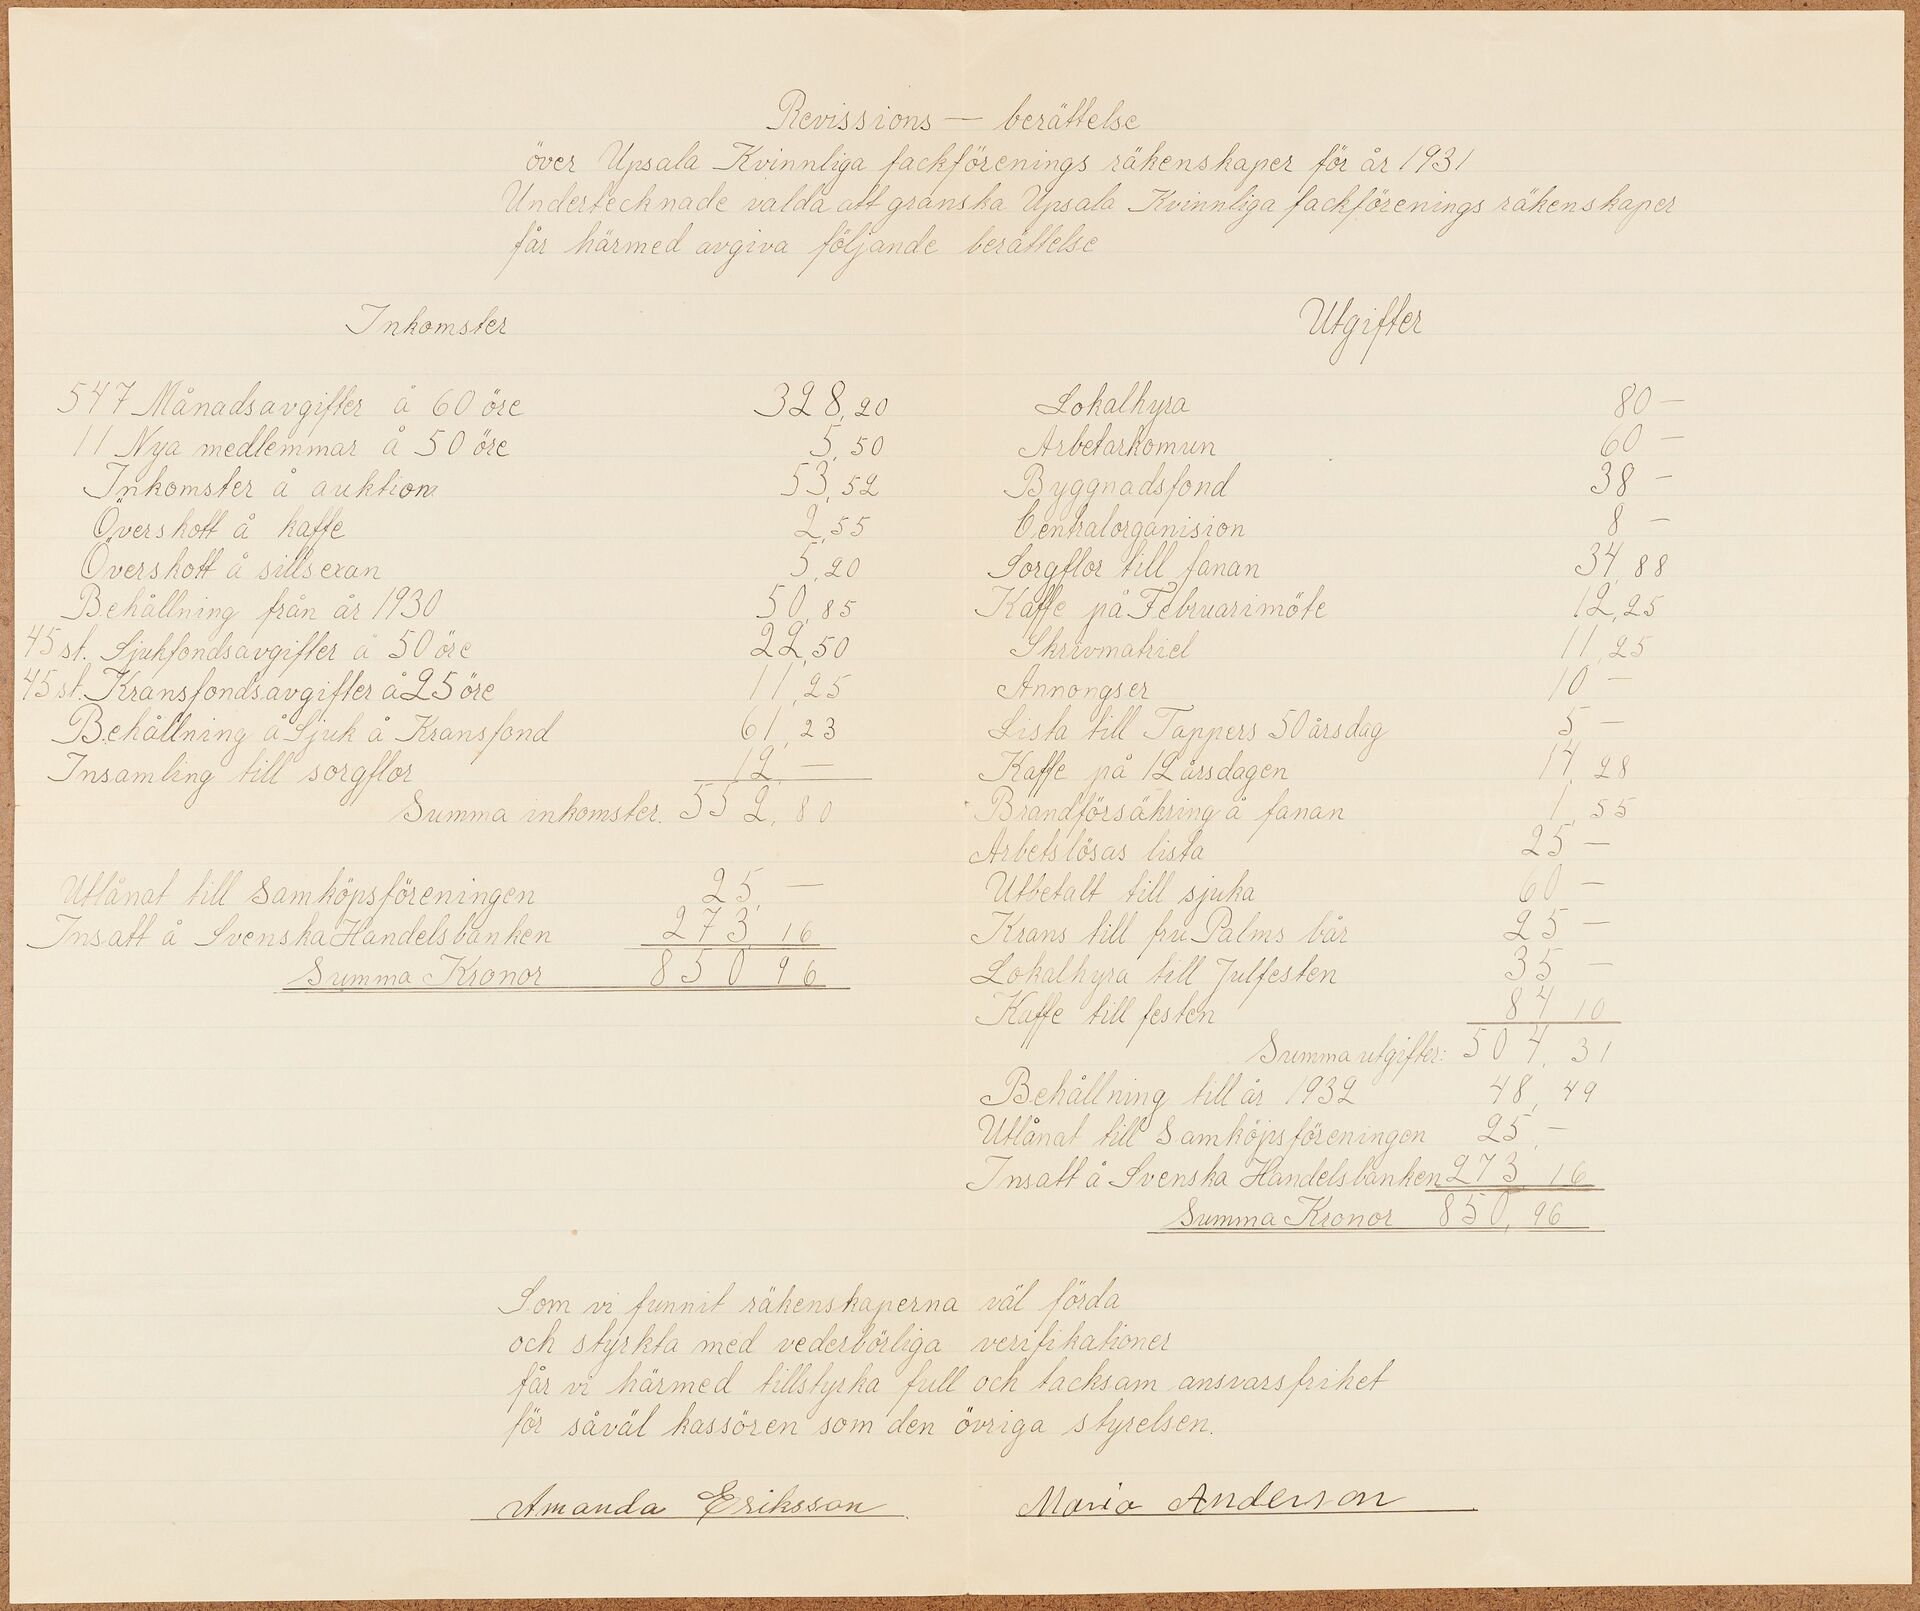 Revissions — berättelse
över Upsala Kvinnliga fackförenings räkenskaper för år 1931
Undertecknade valda att granska Upsala Kvinnliga fackförenings räkenskaper
får härmed avgiva följande berättelse
Inkomster
547 Månadsavgifter å 60 öre 328,20
11 Nya medlemmar å 50 öre 5,50
Inkomster å auktion 53,52
Överskott å kaffe 2,55
Överskott å sillsexan 5,20
Behållning från år 1930 50,85
45 st. Sjukfondsavgifter å 50 öre 22,50
45 st. Kransfondsavgifter å 25 öre 11,25
Behållning å Sjuk å Kransfond 61,23
Insamling till sorgflor 12,—
Summa inkomster. 552,80
Utlånat till Samköpsföreningen 25,—
Insatt å Svenska Handelsbanken 273,16
Summa Kronor 850 96
Utgifter
Lokalhyra 80 —
Arbetarkomun 60 —
Byggnadsfond 38 —
Centralorganision 8 —
Sorgflor till fanan 34,88
Kaffe på Februarimöte 12,25
Skrivmatriel 11,25
Annongser 10 —
Lista till Tappers 50 årsdag 5 —
Kaffe på 12 årsdagen 14,28
Brandförsäkring å fanan 1,55
Arbetslösas lista 25 —
Utbetalt till sjuka 60 —
Krans till fru Palms bår 25 —
Lokalhyra till Julfesten 35 —
Kaffe till festen 84 10
Summa utgifter: 504,31
Behållning till år 1932 48,49
Utlånat till Samköpsföreningen 25,—
Insatt å Svenska Handelsbanken 273,16
Summa Kronor 850,96
Som vi funnit räkenskaperna väl förda
och styrkta med vederbörliga verifikationer
får vi härmed tillstyrka full och tacksam ansvarsfrihet
för såväl kassören som den övriga styrelsen.
Amanda Eriksson Maria Anderson